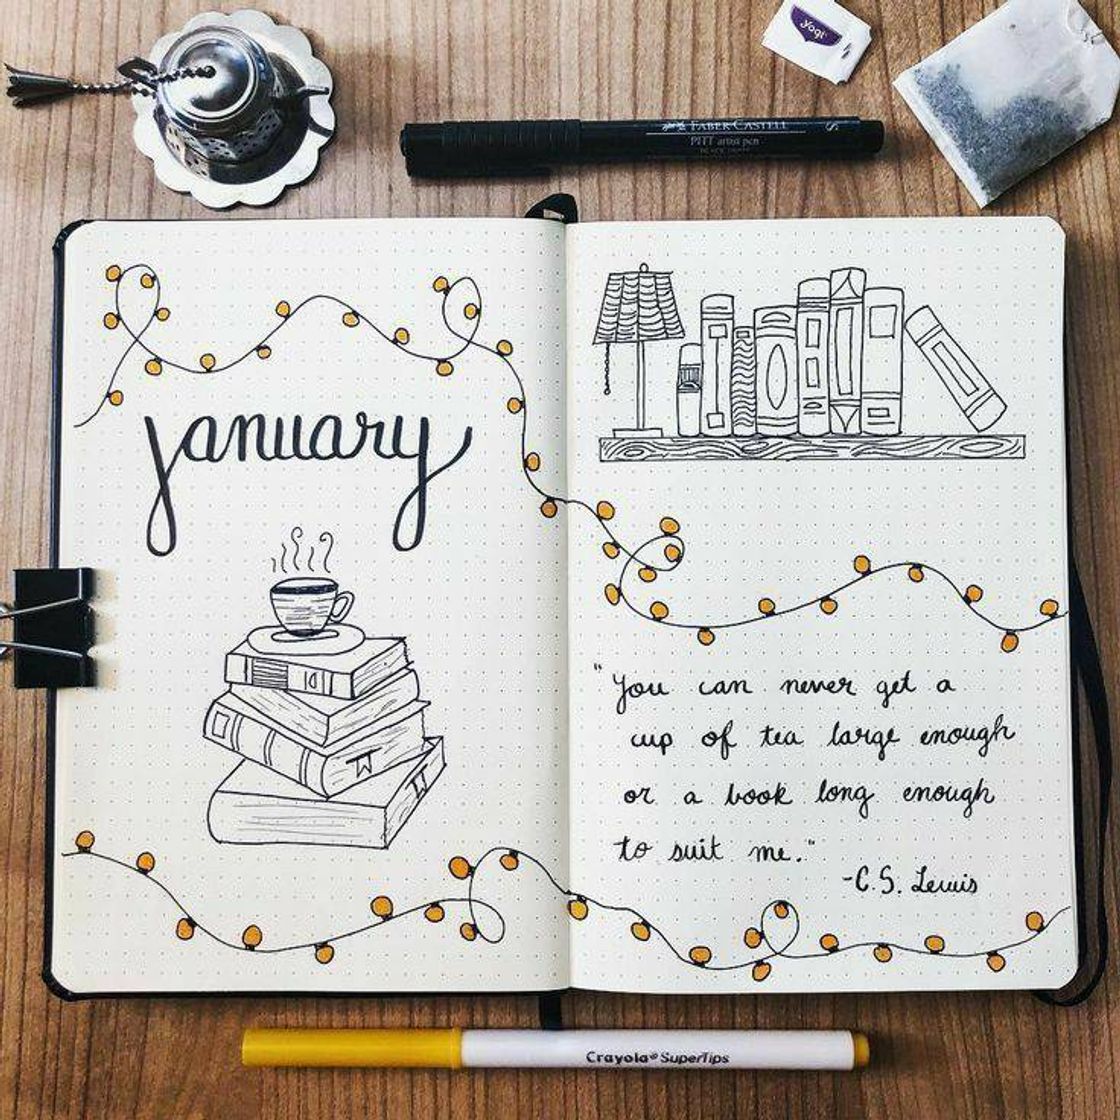 yogi
FABER-CASTELL
PITT artist pen
S
january
"You can never get a
cup of tea large enough
or a book long enough
to suit me."
-C.S. Lewis
Crayola® SuperTips